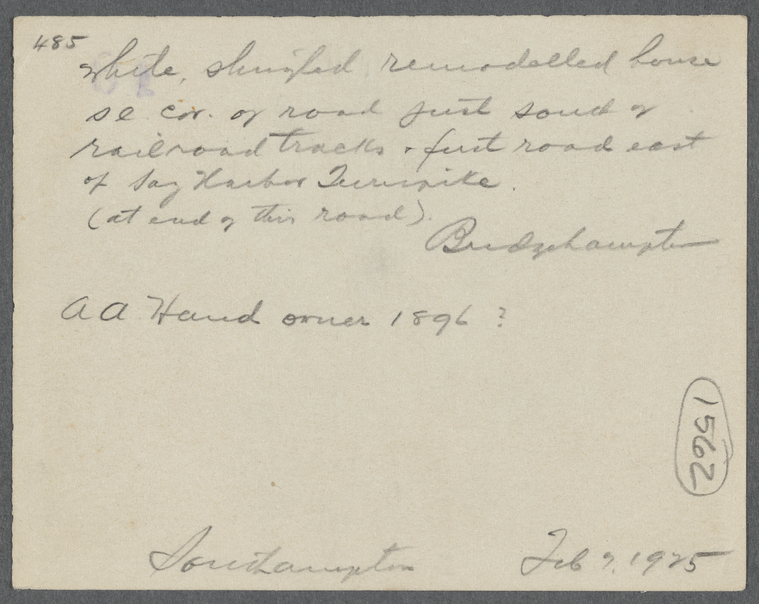 485
White, shingled remodelled house
se cor. of road just south of
railroad tracks & first road east
of Sag Harbor Turnpike.
(at end of this road).
Bridgehampton
A A Hand owner 1896 ?
1562
Southampton Feb 7, 1925